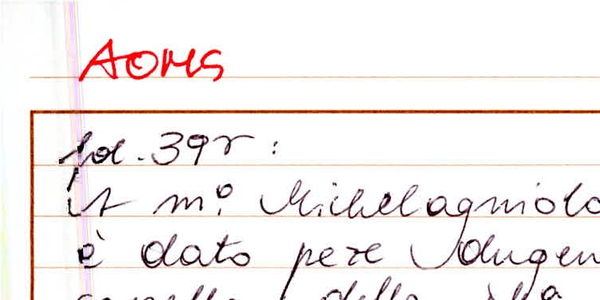 AOMS
fol. 39r:
It m.º Michelagniolo
è dato pere dugen
della